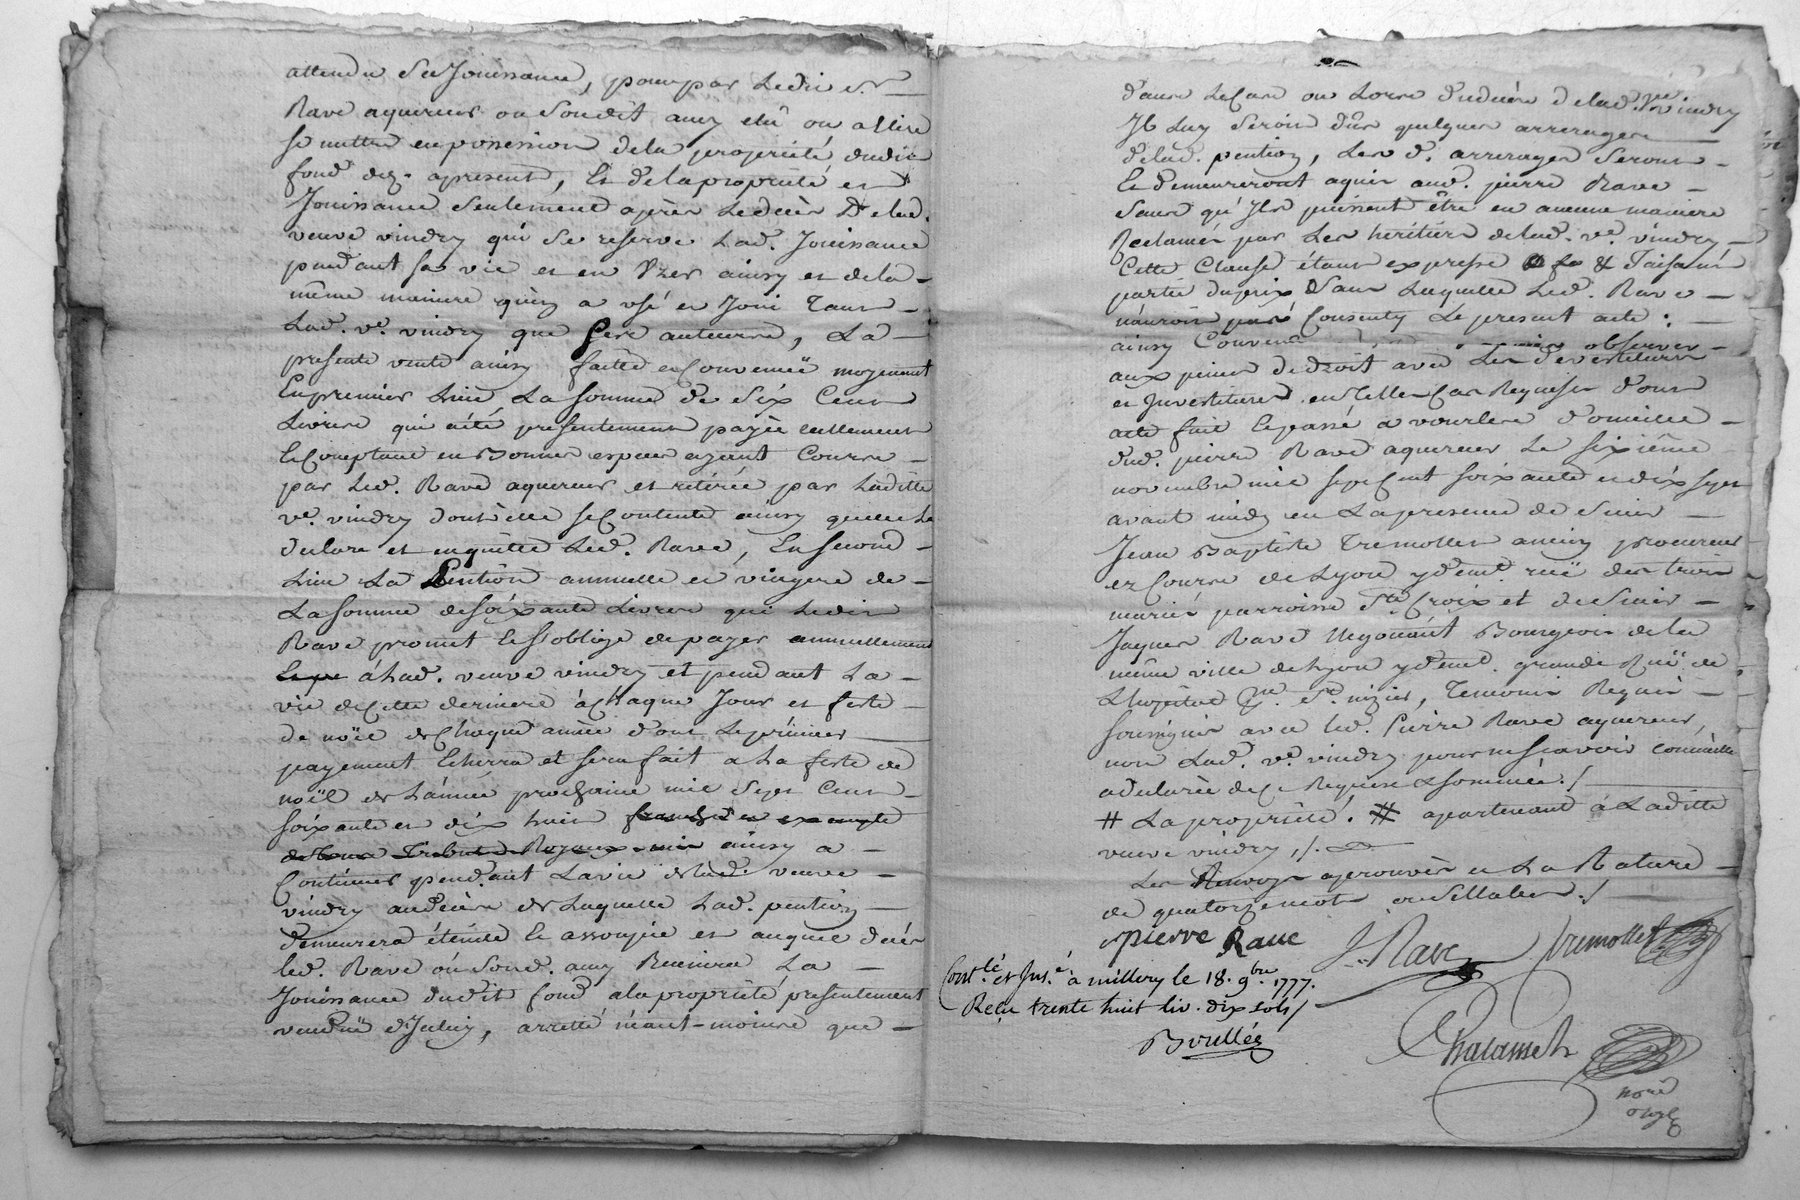 attendu sa Jouissance, pour par Ledit Sr
Rave aquereur ou Soudit amy elû ou a Elire
se mettre en possession dela propriété dudit
fond dez apresent, Et dela propriété et
Jouissance seulement après Ledécès De lad.
veuve vindry qui se reserve Lad. Jouissance
pendant sa vie et en Vzer ainsy et dela
même maniere qu'en a usé et Joui Tant
Lad. ve. vindry que ses auteurs, La
presente vente ainsy faitte et Convenuë moyennant
En premier Lieu La somme de Six Cent
Livres qui a été presentement payée reellement
Et Comptant en Bonnes especes ayant Cours
par Led. Rave aquereur et retirée par Laditte
ve. vindry dont elle se Contente ainsy quelle le
declare et en quitte Led. Rave, En second
Lieu La Pention annuelle et viagere de
La somme de soixante Livres que Ledit
Rave promet et s'oblige de payer annuellement
à Lad. veuve vindry et pendant La
vie de Cette derniere à Chaque Jour et feste
de noël de Chaque année dont Le premier
payement Echerra et sera fait a La feste de
noël de L'année prochaine mil Sept Cent
soixante et dix huit franche et exempte
de tous Tributs Royaux ainsy a
Continuer pendant La vie de Lad. veuve
vindry au décès de Laquelle Lad. pention
demeurera éteinte et assoupie et auquel décès
led. Rave ou Sond. amy Reunira La
Jouissance dudit fond a la propriété presentement
venduë d'Iceluy, arretté néant-moins que
dans Le Cas ou Lors du décès delad. ve. vindry
Il Luy seroit dûs quelques arrerages
delad. pention, Les d. arrerages seront
Et demeureront aquis aud. pierre Rave
sans qu'Ils puissent être en aucune maniere
Reclamés par Les héritiers delad. ve. vindry
Cette Clause étant expresse & faisant
partie du prix Sans Laquelle Led. Rave
n'auroit pas Consenty Le present acte :
ainsy Convenu observer
aux peines de droit avec Les devestitures
et Investitures en Telles Cas Requises dont
acte fait et passé a vourles domicile
dud. pierre Rave aquereur Le sixiéme
novembre mil sept Cent soixante et dix sept
avant midy en La presence de Sieur
Jean Baptiste Tremollet ancien procureur
ez Cours de Lyon y demt. ruë des trois
maries parroisse Ste. Croix et de Sieur
Jaques Rave Negociant Bourgeois de la
même ville de Lyon y demt. grande Ruë de
L'hopital psse. St. nizier, Temoins Requis
soussignés avec led. Pierre Rave aquereur,
non Lad. ve. vindry pour ne sçavoir comm'elle
a declarée de Ce Requise & sommée ./
# La propriété. # apartenant à Laditte
veuve vindry ./.
Les Renvoys aprouvés et La Rature
de quatorze mots ou sillabes ./
pierre Rave
J. Rave
Tremollet
Contlé. et Insé. à millery le 18. 9bre 1777.
Reçu trente huit liv. dix sols /
Boullée
Chalamel